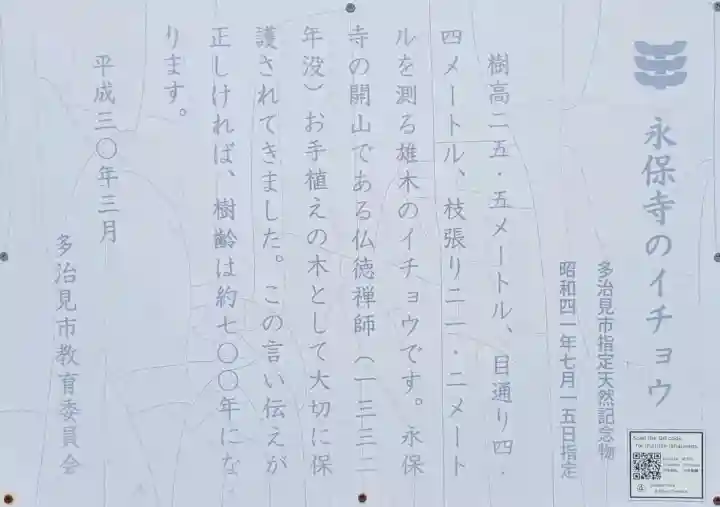 永保寺のイチョウ
多治見市指定天然記念物
昭和四一年七月一五日指定
樹高二五・五メートル、目通り四・
四メートル、枝張り二一・二メート
ルを測る雄木のイチョウです。永保
寺の開山である仏徳禅師(一三三二
年没)お手植えの木として大切に保
護されてきました。この言い伝えが
正しければ、樹齢は約七〇〇年にな
ります。
平成三〇年三月
多治見市教育委員会
Scan the QR code